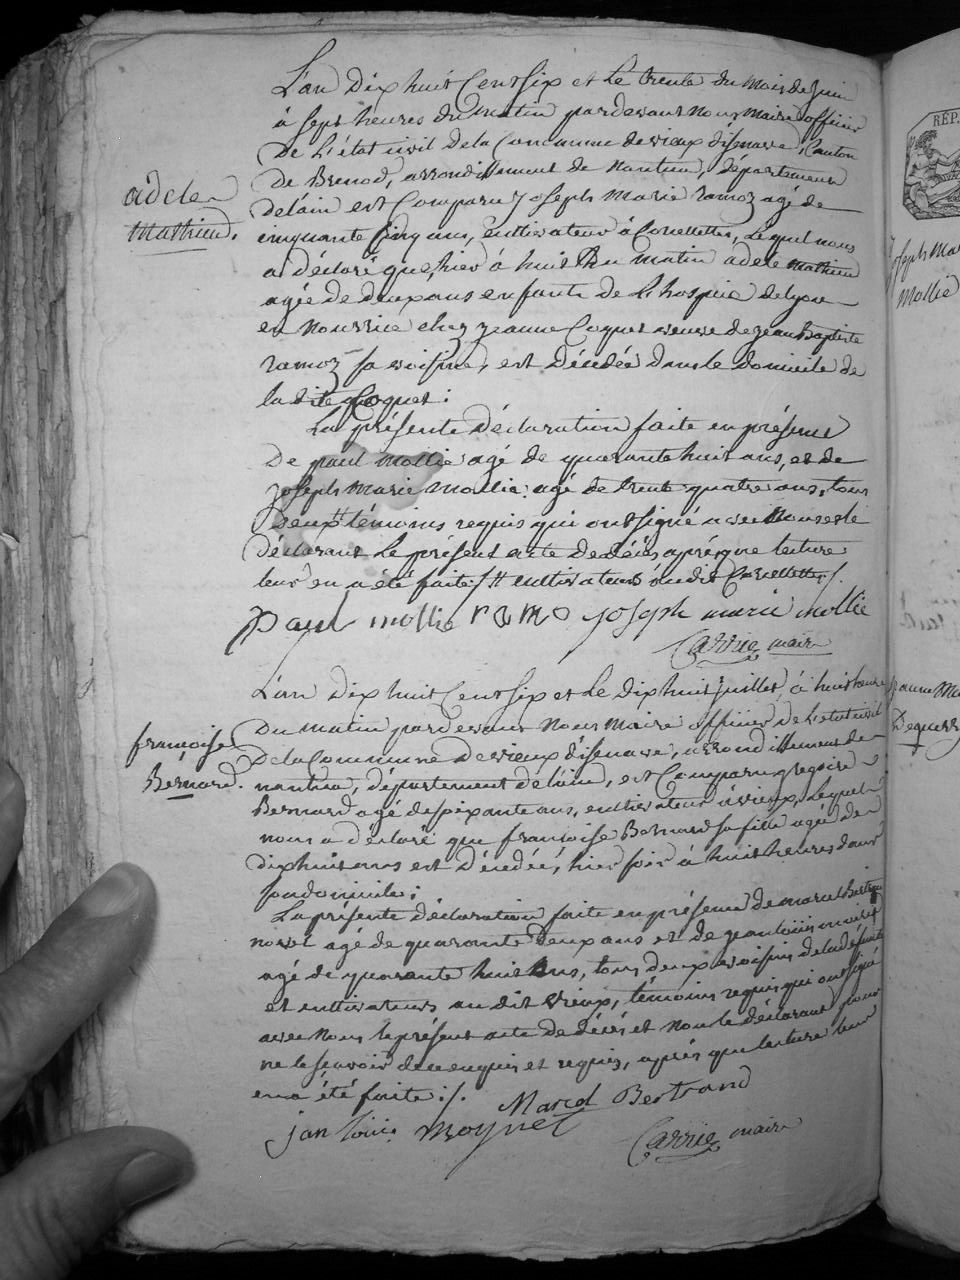 L'an Dix huit Cent six et Le trente du mois de juin
à sept heures du matin pardevant nous maire officier
De L'état civil De la Commune de vieux d'isenave, Canton
De Brenod, arrondissement de nantua, département
adele
Mathieu.
de l'ain est Comparu joseph marie ramoz agé de
cinquante Cinq ans, cultivateur à Corcellettes, Lequel nous
a déclaré que hier à huit h du matin adele mathieu
agée de deux ans enfante de L'hospice de lyon
en nourrice chez jeanne Coquet veuve de jean Baptiste
ramoz sa voisine, est Décédée dans le domicile de
la dite Coquet :
La présente déclaration faite en présence
De paul mollie agé de quarante huit ans, et de
joseph marie mollie agé de trente quatre ans, tous
Deux # témoins requis qui ont signé avec nous et le
déclarant Le présent acte de décès après que lecture
leur en a été faite ./. # cultivateurs audit Corcellettes ./.
paul mollie ramo joseph marie mollie
Carrie maire
L'an Dix huit Cent six et Le dix huit juillet, à huit heures
françoise
Bernard.
Du matin pardevant nous maire officier de L'état civil
De la Commune De vieux d'isenave, arrondissement de
nantua, département de l'ain, est Comparu gregoire
Bernard agé de soixante ans, cultivateur à vieux, Lequel
nous a déclaré que françoise Bernard sa fille agée de
dix huit ans est Décédée, hier soir à huit heures dans
son domicile ;
La présente déclaration faite en présence de marcel Bertran
agé de quarante deux ans et de jean louis
agé de quarante huit ans, tous deux voisins de la défunte
et cultivateurs au dit vieux, témoins requis qui ont signé
avec nous le présent acte de décès et non le déclarant pour
ne le savoir de ce enquis et requis, après que lecture leur
en a été faite ./.
Marcel Bertrand
jan louis moynet
Carrie maire
RÉP.
joseph Mar
Mollie
jeanne Ma
Deguerr